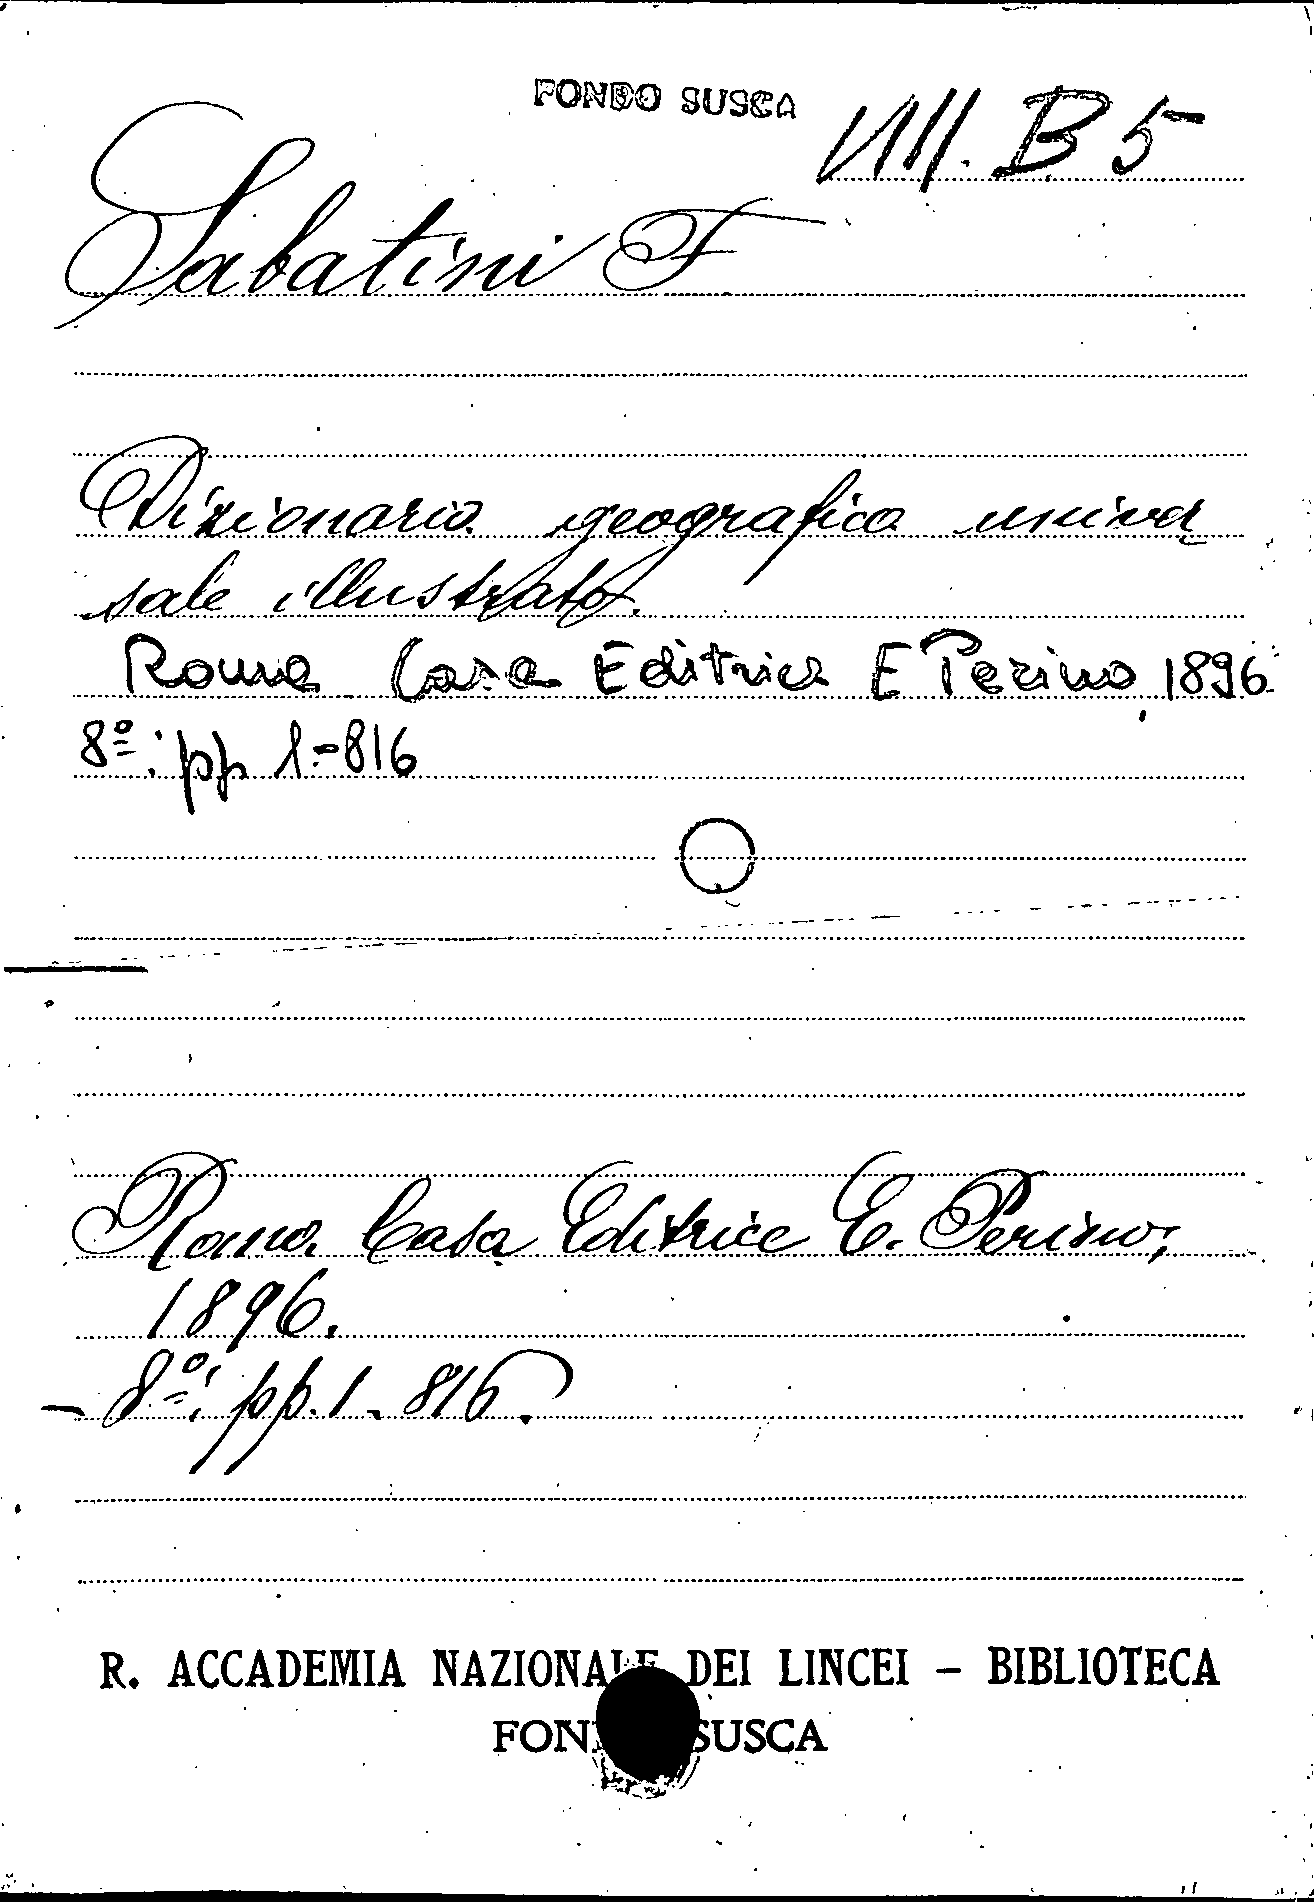 FONDO SUSCA
VIII. B 5
Sabatini F
Dizionario geografico univer
sale illustrato.
Roma Casa Editrice E Perino, 1896
8º: pp 1-816
Roma Casa Editrice E. Perino,
1896.
8º: pp. 1-816.
R. ACCADEMIA NAZIONALE DEI LINCEI - BIBLIOTECA
FONDO SUSCA